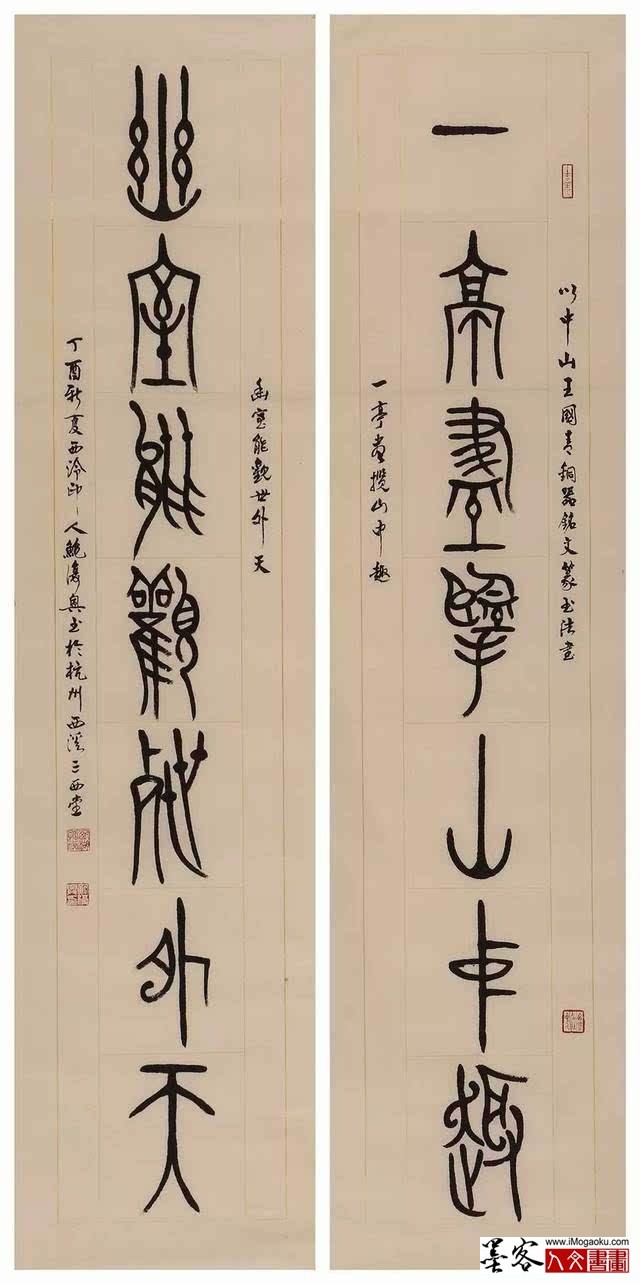 以中山王國青銅器銘文篆書法書
一亭盡攬山中趣
一亭盡攬山中趣
幽室能觀世外天
幽室能觀世外天
丁酉新夏西泠印人鮑復興書於杭州西溪三西堂
www.iMogaoku.com
墨客人文書畫